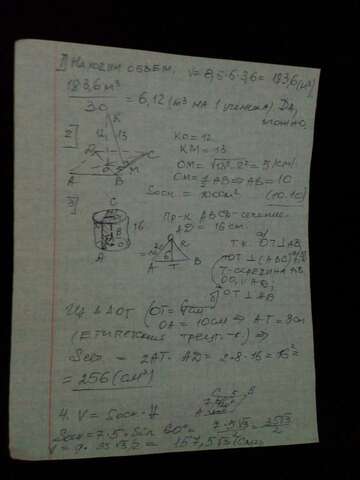 1) Находим объем, V = 8,5·6·3,6 = 183,6 (м³)
183,6 м³
30
= 6,12 (м³ на 1 ученика) Да,
можно,
2)
K
12 13
D C
O M
A B
KO = 12
KM = 13
= 5 (см)
OM = 1/2 AB ⇒ AB = 10
Sосн. = 100 см²
(10·10)
3)
C
16
B
A
Пр-к ABCD-сечение.
AD = 16 см.
A T B
т.к. OT⊥AB,
T-середина AB
OT⊥AB
Δ AOT
OA = 10 см ⇒ AT = 8 см
(Египетский треуг-к) ⇒
Sсеч = 2AT · AD = 2·8·16 = 16²
= 256 (см²)
4. V = Sосн · H
Sосн = 7·5·Sin 60° = 7·5√3/2 = 35√3/2
V = 9·35√3/2 = 157,5√3 (см³)